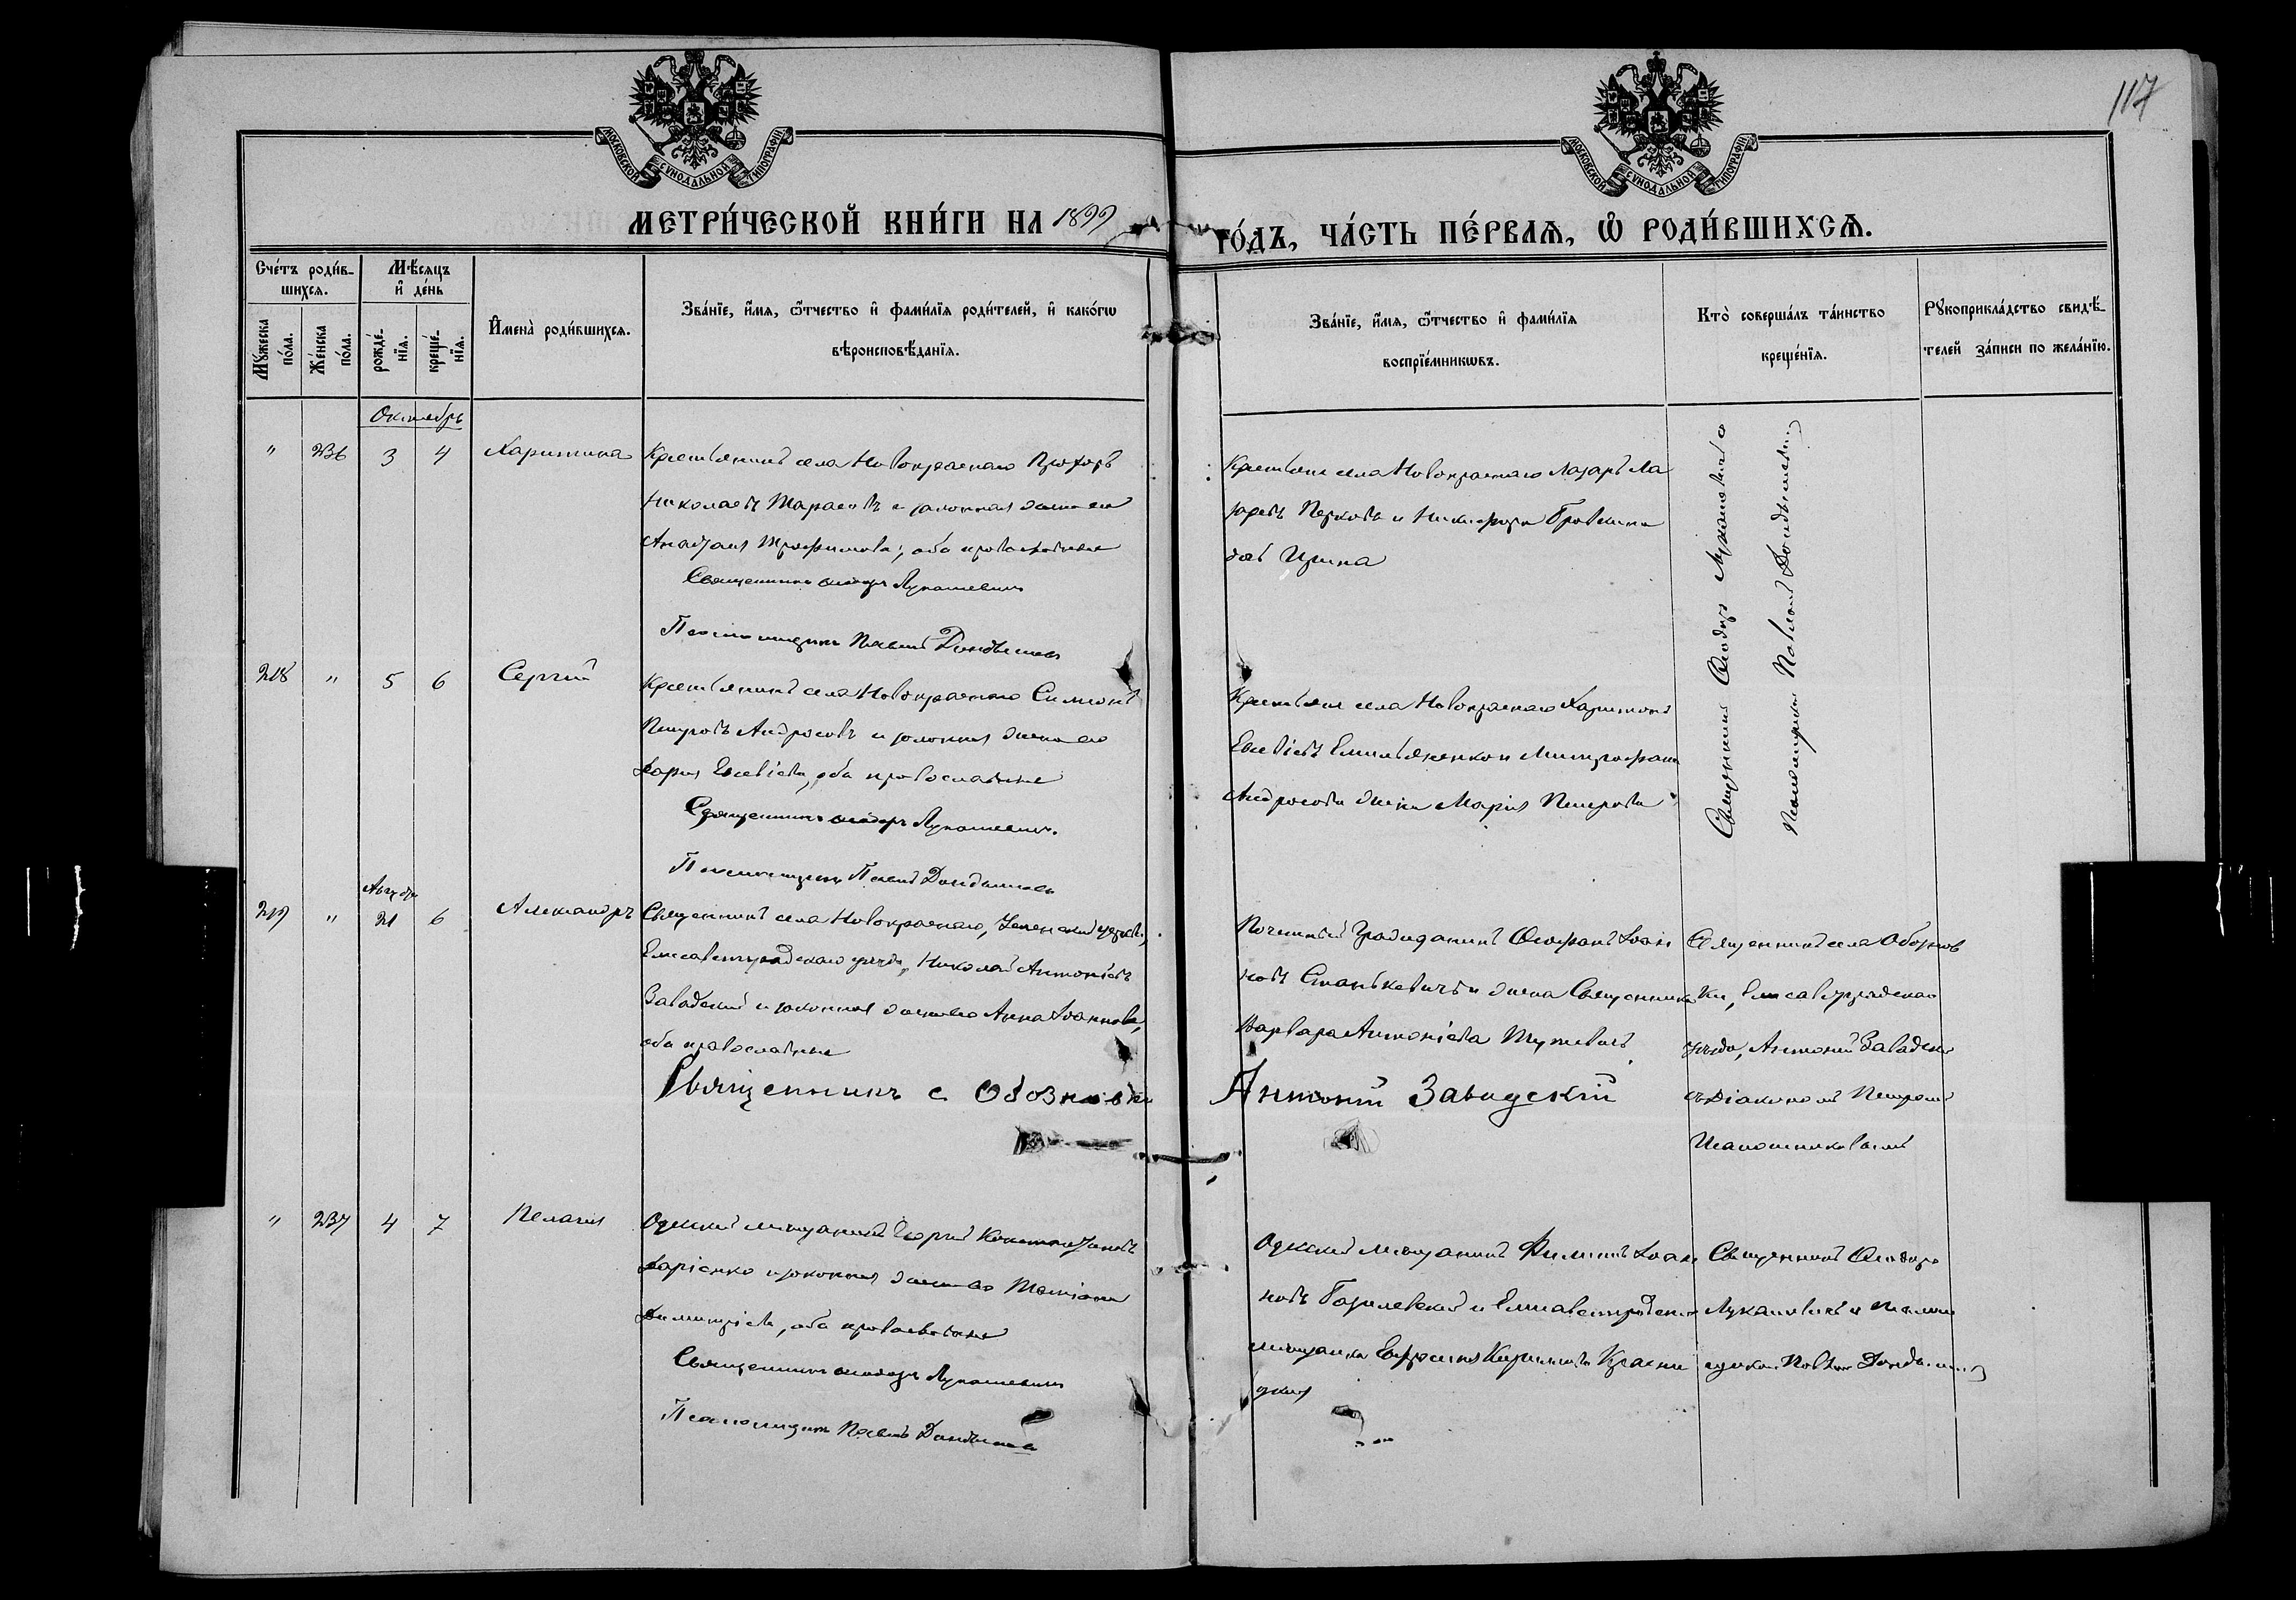 117
МОСКОВСКОЙ СѴНОДАЛЬНОЙ ТИПОГРАФІИ
МОСКОВСКОЙ СѴНОДАЛЬНОЙ ТИПОГРАФІИ
МЕТРИ́ЧЕСКОЙ КНИ́ГИ НА 1899 ГО́ДЪ, ЧА́СТЬ ПЕ́РВАѦ, Ѽ РОДИ́ВШИХСѦ.
Сче́тъ роди́вшихсѧ.
Мѣ́сѧцъ и҆ де́нь
Мꙋ́жеска по́ла.
Же́нска по́ла.
рожде́нїѧ.
креще́нїѧ.
И҆мена̀ роди́вшихсѧ.
Зва́нїе, и҆́мѧ, ѻ҆́тчество и҆ фами́лїѧ роди́телей, и҆ како́гѡ вѣроисповѣ́данїѧ.
Зва́нїе, и҆́мѧ, ѻ҆́тчество и҆ фами́лїѧ воспрїе́мникѡвъ.
Кто̀ соверша́лъ та́инство креще́нїѧ.
Рꙋкоприкла́дство свидѣ́телей за́писи по жела́нїю.
Октябрь
" 236 3 4 Харитина
Крестьянинъ села Новокраснаго Прохоръ
Николаевъ Тарасовъ и законная жена его
Трофимова; оба православные
Священникъ Ѳеодоръ Лукашевичъ
Псаломщикъ Павелъ
Крестьяне села Новокраснаго Лазарь Ла
заревъ и Никифора
Ирина
Священникъ Ѳеодоръ Лукашевичъ съ
Псаломщикомъ Павломъ
218 " 5 6 Сергій
Крестьянинъ села Новокраснаго Симеонъ
Петровъ Андросовъ и законная жена его
Дарія Евсевіева, оба православные
Священникъ Ѳеодоръ Лукашевичъ.
Псаломщикъ Павелъ
Крестьяне села Новокраснаго Харитонъ
Евсевіевъ Емельяненко и Митрофана
Андросова жена Марія Петрова
Августа
219 " 21 6 Александръ
Священникъ села Новокраснаго,
Елисаветградскаго уѣзда, Николай Антоніевъ
Завадскій и законная жена его Анна Іоаннова,
оба православные
Священникъ с. Обозновки Антоній Завадскій
Почетный Гражданинъ Ѳеофанъ Іоан
новъ Станькевичъ и жена Священника
Варвара Антоніева
Священникъ села Обознов
ки, Елисаветградскаго
уѣзда, Антоній Завадскій
съ Діакономъ Петромъ
" 237 4 7 Пелагія
Одесскій мѣщанинъ Георгій Константиновъ
Даріенко и законная жена его Татіана
Димитріева, оба православные
Священникъ Ѳеодоръ Лукашевичъ
Псаломщикъ Павелъ
Одесскій мѣщанинъ Филиппъ Іоан
новъ и Елисаветградская
мѣщанка Евфросинія Кириллова
Священникъ Ѳеодоръ
Лукашевичъ и псалом
щикъ Павелъ